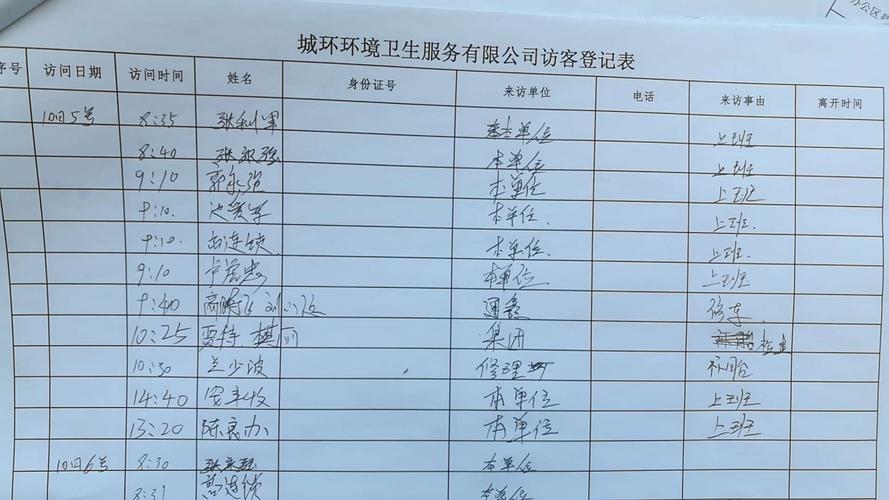 办公区
城环环境卫生服务有限公司访客登记表
序号 访问日期 访问时间 姓名 身份证号 来访单位 电话 来访事由 离开时间
10月5号 8:35 张利军 本单位 上班
8:40 张永强 本单位 上班
9:10 郭永强 本单位 上班
9:10. 本单位. 上班.
9:10. 连锁. 本单位. 上班.
9:10 本单位. 上班
9:40 修车.
10:25 贾特. 集团 检查
10:30 兰少波 修理
14:40 安丰收 本单位 上班
13:20 陈良办 本单位 上班
10月6号 8:30 本单位
8:31 连锁 本单位